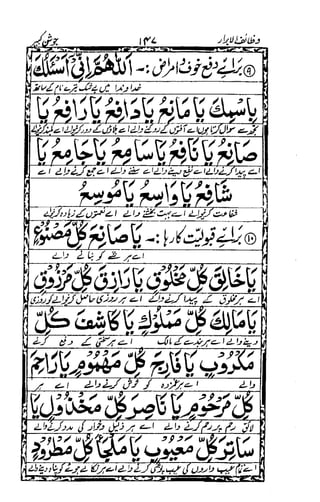 وظائف الابرار ۱۴۷ جوشن کبیر
⑨ برائے دفع خوف امراض :- اَللّٰهُمَّ اِنِّیْ اَسْئَلُكَ
خداوندا میں بے شک تیرے نام کے ساتھ
بِاسْمِكَ یَا مَانِعُ یَا دَافِعُ یَا رَافِعُ یَا
تجھ سے سوال کرتا ہوں اے
صَانِعُ یَا نَافِعُ یَا سَامِعُ یَا جَامِعُ یَا
اے پیدا کرنے والے اے نفع دینے والے اے سننے والے اے جمع کرنے والے اے
شَافِعُ یَا وَاسِعُ یَا مُوْسِعُ
شفاعت کرنیوالے اے بہت بخشنے والے اے نعمتوں کے زیادہ کرنیوالے
⑩ برائے قبولیت کارہا :- یَا صَانِعَ كُلِّ مَصْنُوْعٍ
اے ہر شے کو بنانے والے
یَا خَالِقَ كُلِّ مَخْلُوْقٍ یَا رَازِقَ كُلِّ مَرْزُوْقٍ
اے ہر مخلوق کے پیدا کرنے والے اے ہر روزی حاصل کرنیوالے کو روزی
یَا مَالِكَ كُلِّ مَمْلُوْكٍ یَا كَاشِفَ كُلِّ
دینے والے اے ہر بندے کے مالک اے ہر سختی کے دفع کرنے
مَكْرُوْبٍ یَا فَارِجَ كُلِّ مَهْمُوْمٍ یَا رَاحِمَ
والے اے ہر غمزدہ کو خوش کرنے والے اے ہر
كُلِّ مَرْحُوْمٍ یَا نَاصِرَ كُلِّ مَخْذُوْلٍ یَا
لائق رحم پر رحم کرنے والے اے ہر ذلیل و خوار کی مدد کرنے والے
سَاتِرَ كُلِّ مَعْیُوْبٍ یَا مَلْجَأَ كُلِّ مَطْرُوْدٍ
اے تمام عیب داروں کی عیب پوشی کرنے والے اے ہر نکالے ہوئے کو پناہ دینے والے